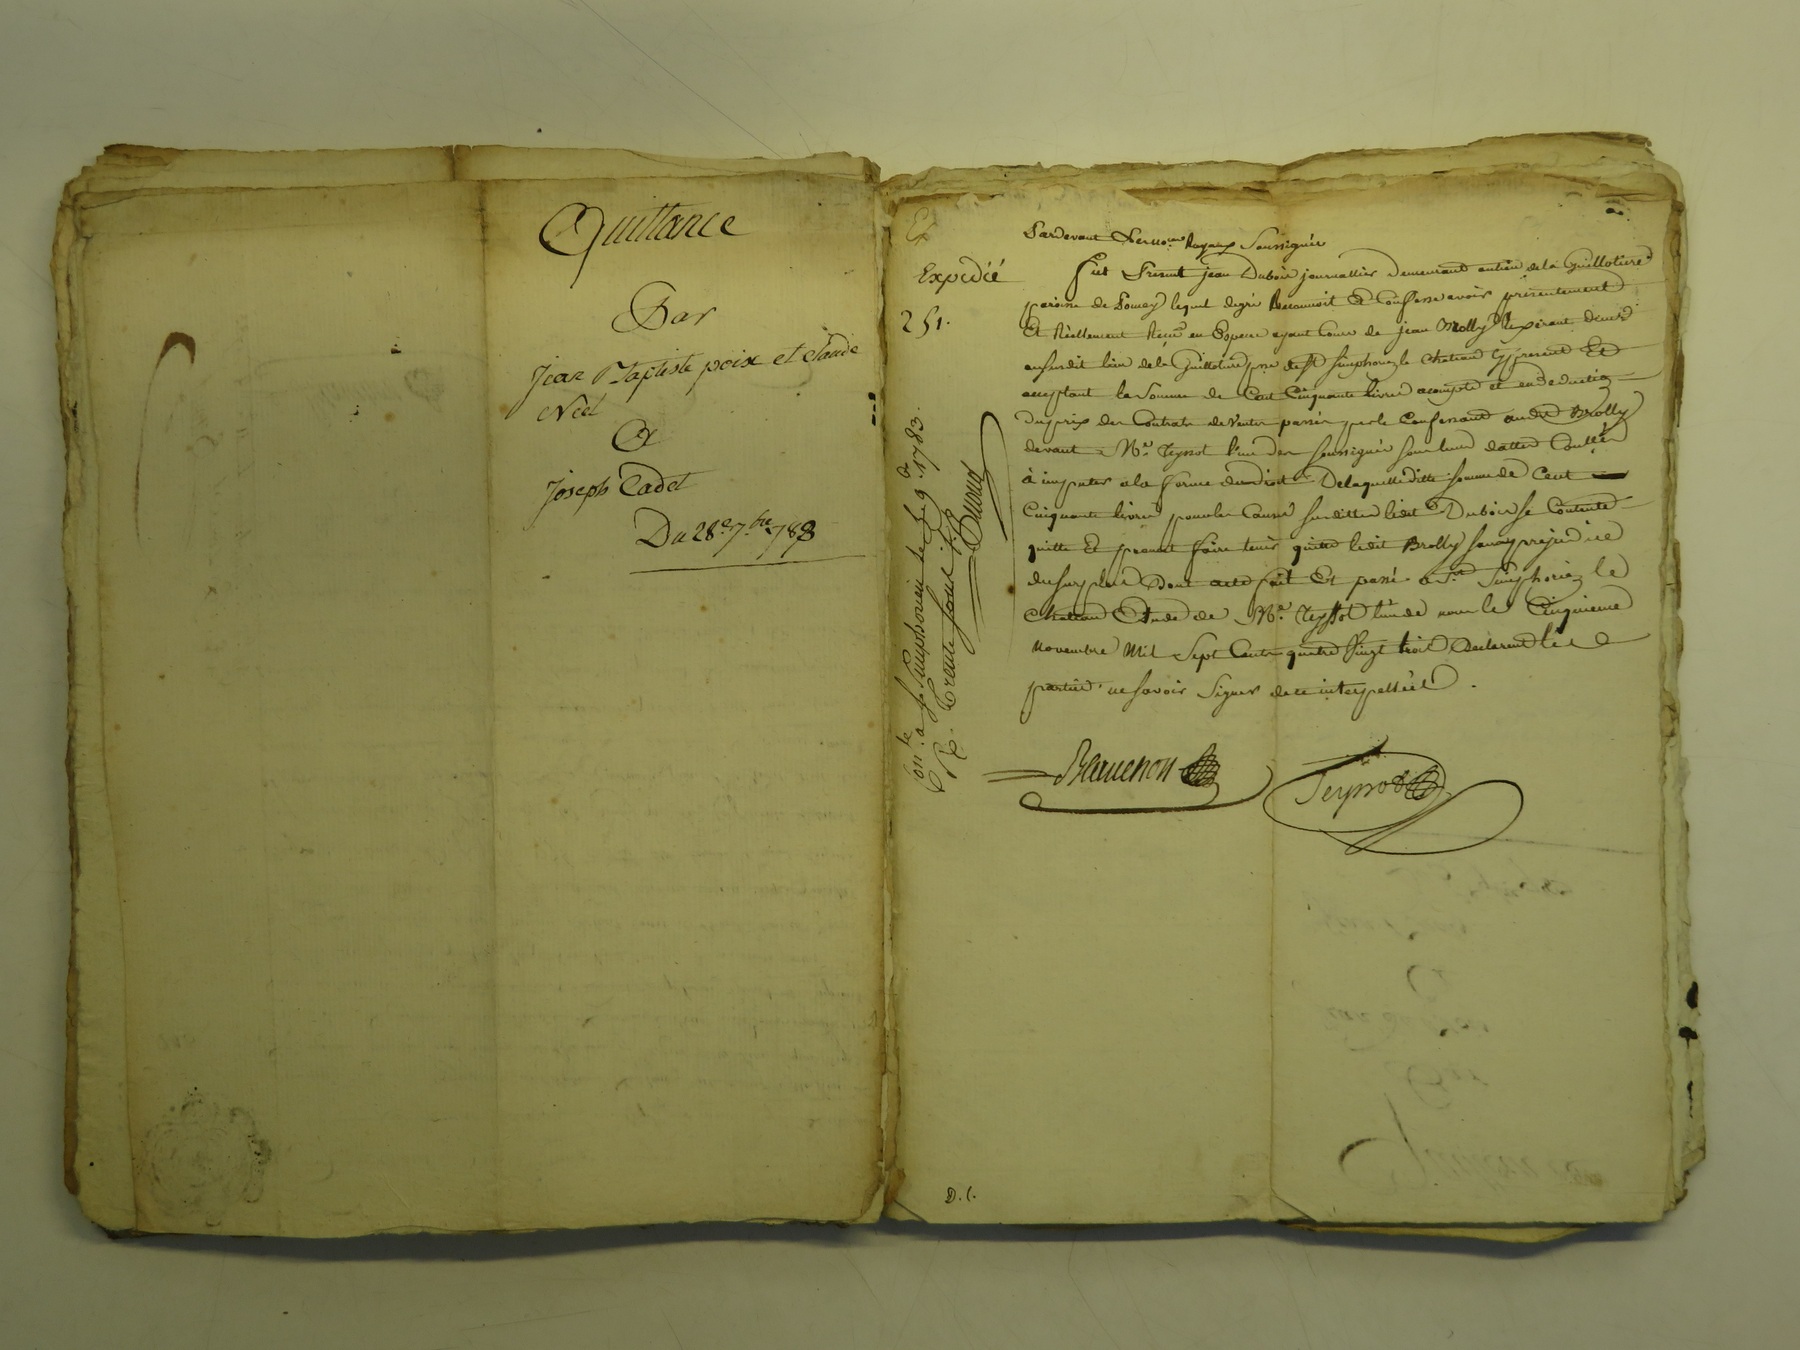 Quittance
Par
Jean Baptiste poix et claude
Noel
A
Joseph Cadet
Du 28e 7bre 1783
Ex
Expedié
251.
Conlé a St Simphorien le 9 9bre 1783.
R. trente sous
Pardevant Les No.res Royaux Soussignés
fut Present jean Dubois journallier demeurant au lieu de la Guillotiere
paroisse de lequel de gré Reconnoit Et Confesse avoir presentement
Et Réellement Receu en Especes ayant Cours de jean Brolly
au susdit lieu de la Guillotiere psse de St Simphorien le Chateau cy present Et
acceptant la Somme de Cent Cinquante livres acompte et en deduction
du prix du Contrat de Vente passé par le Confessant audit Brolly
devant Me Teyssot l'un des soussignés sous leurs dattes
à imputer a la forme du droit De laquelle ditte somme de Cent
Cinquante livres pour les Causes susdittes ledit Dubois se Contente
quitte Et promet faire tenir quitte ledit Brolly sans prejudice
du surplus Dont acte fait Et passé a St Simphorien le
Chateau Etude de Me Teyssot l'un de nous le Cinquieme
novembre Mil Sept Cents quatre Vingt trois Declarent les
parties ne savoir Signer de ce interpellées.
Teyssot
D. C.